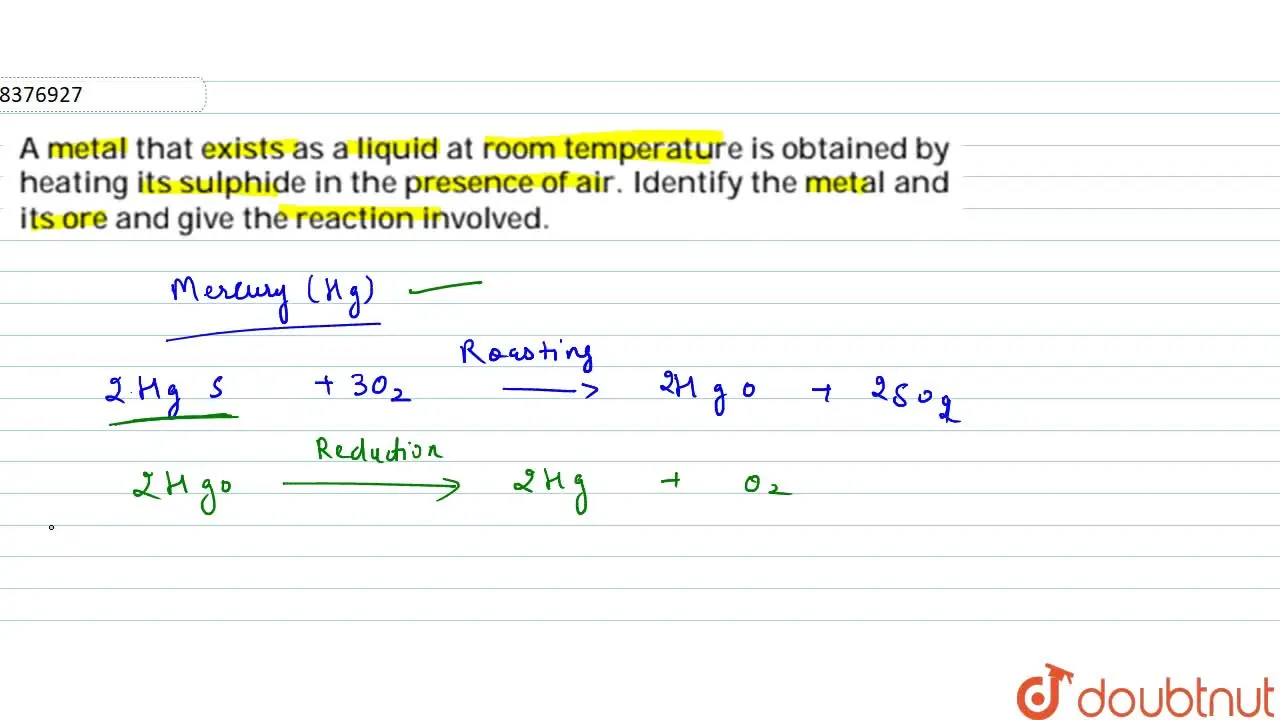 8376927
A metal that exists as a liquid at room temperature is obtained by
heating its sulphide in the presence of air. Identify the metal and
its ore and give the reaction involved.
Mercury (Hg)
Roasting
2HgS + 3O₂ → 2HgO + 2SO₂
Reduction
2HgO → 2Hg + O₂
doubtnut